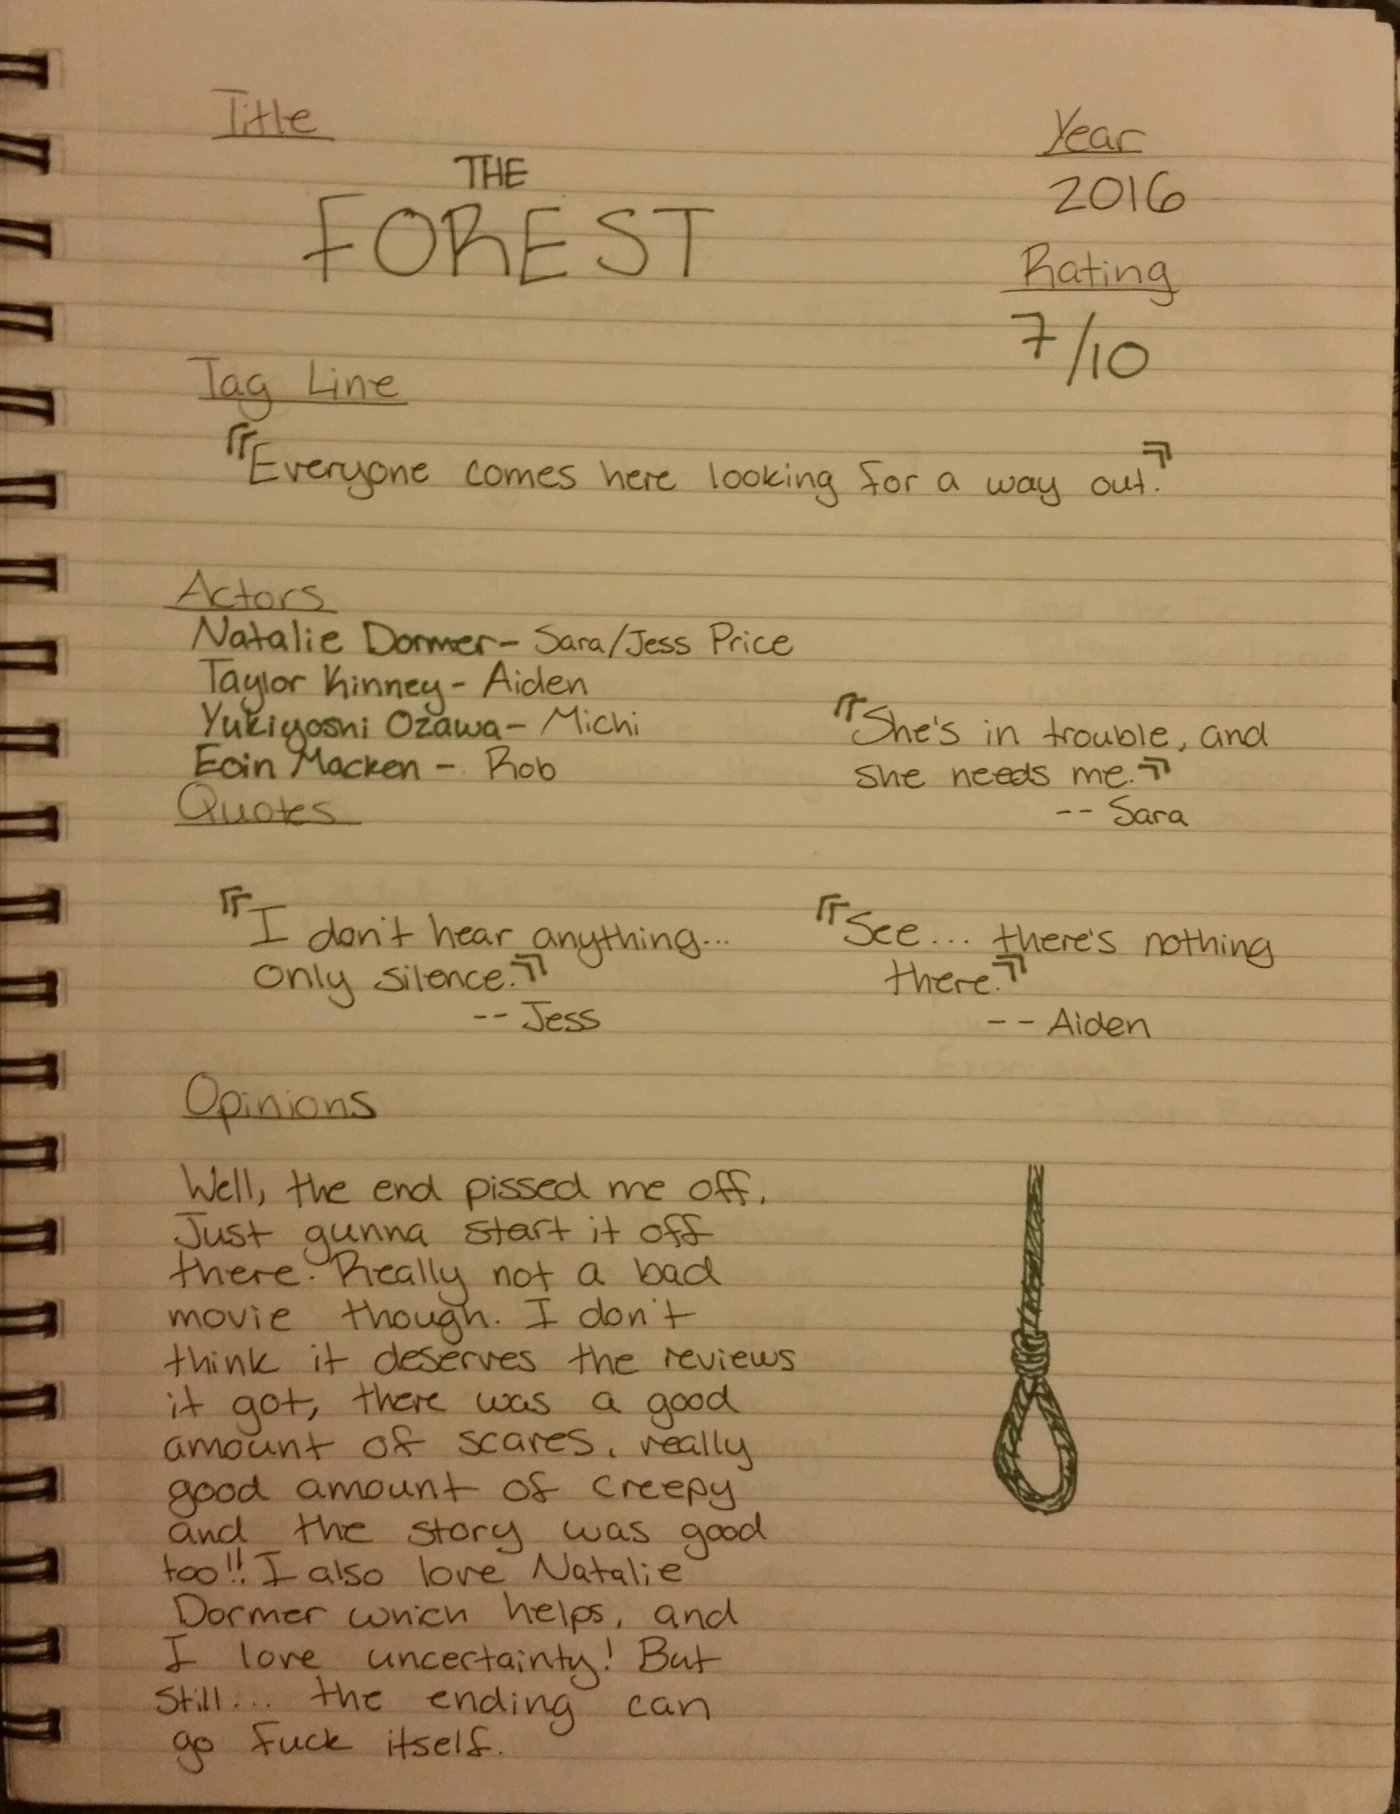 Title
THE
FOREST
Year
2016
Rating
7/10
Tag Line
"Everyone comes here looking for a way out."
Actors
Natalie Dormer- Sara/Jess Price
Taylor Kinney- Aiden
Yukiyoshi Ozawa- Michi
Eoin Macken- Rob
Quotes
"She's in trouble, and
she needs me."
-- Sara
"I don't hear anything...
only silence."
-- Jess
"See... there's nothing
there."
-- Aiden
Opinions
Well, the end pissed me off.
Just gunna start it off
there. Really not a bad
movie though. I don't
think it deserves the reviews
it got, there was a good
amount of scares, really
good amount of creepy
and the story was good
too!! I also love Natalie
Dormer which helps, and
I love uncertainty! But
still... the ending can
go fuck itself.